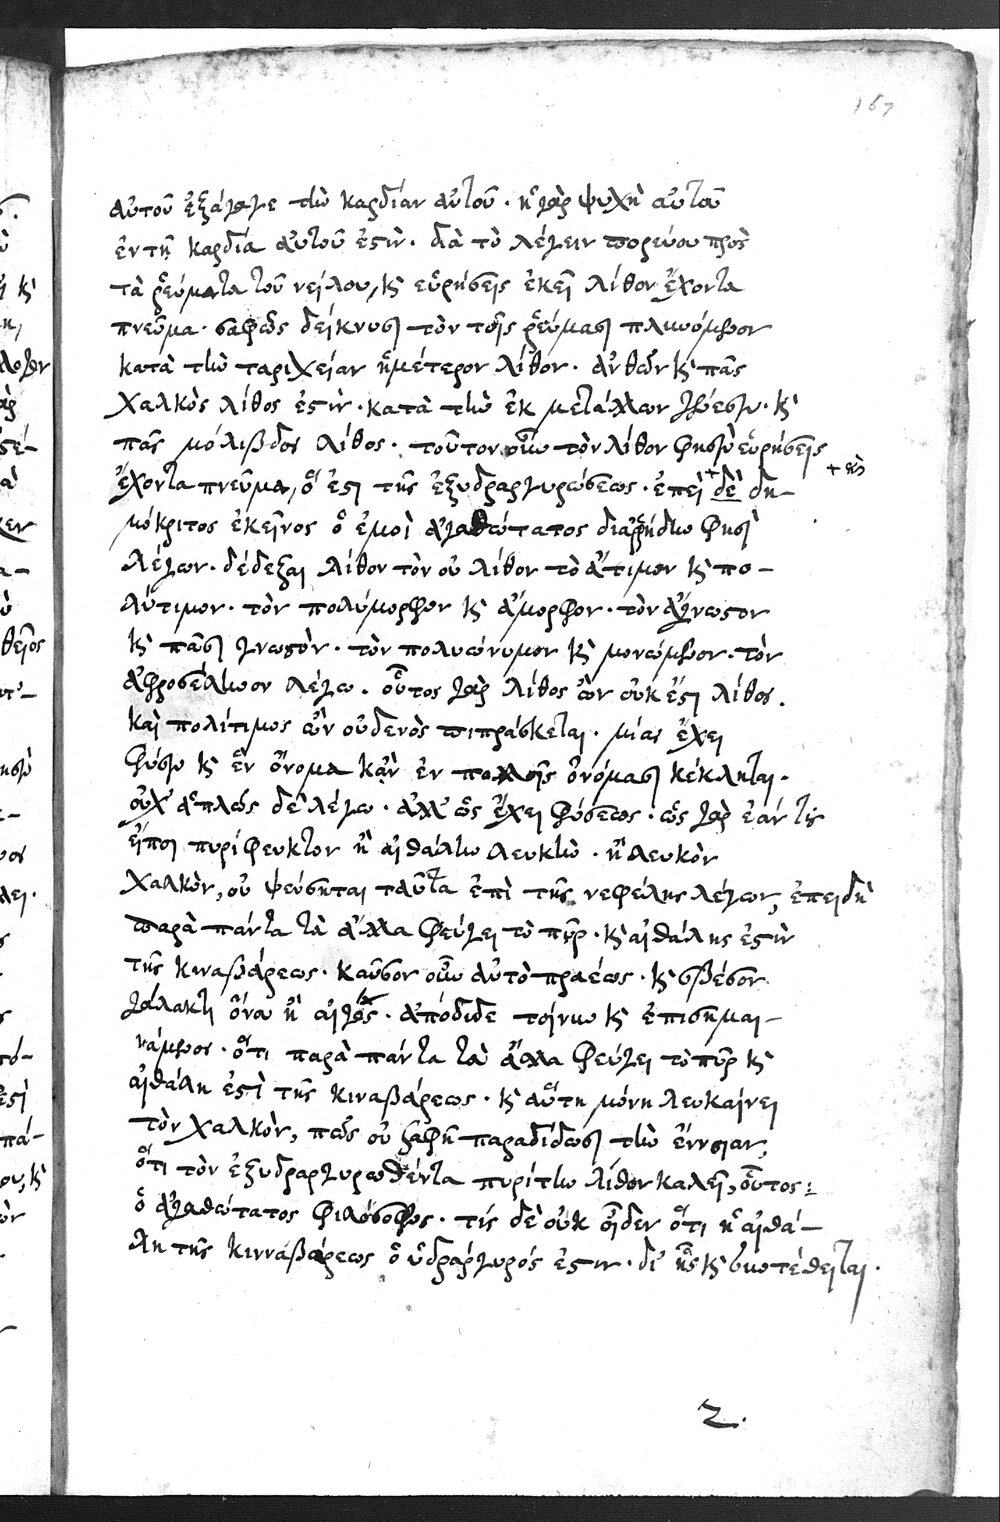 167
αὐτοῦ ἐξάγαγε τὴν καρδίαν αὐτοῦ· ἡ γὰρ ψυχὴ αὐτοῦ
ἐν τῇ καρδία αὐτοῦ ἐστὶν· διὰ τὸ λέγειν πορεύου πρὸς
τὰ ῥεύματα τοῦ νείλου, κὶ εὑρήσεις ἐκεῖ λίθον ἔχοντα
πνεῦμα· σαφῶς δείκνυσι τὸν τοῖς ῥεύμασι πλυνόμενον
κατὰ τὴν ταριχείαν ἡμέτερον λίθον· κὶ πᾶς
χαλκὸς λίθος ἐστὶν· κατὰ τὴν ἐκ μετάλλων γένεσιν· κὶ
πᾶς μόλιβδος λίθος· τοῦτον οὖν τὸν λίθον φησὶν εὑρήσεις
ἔχοντα πνεῦμα, ὅ ἐστι τῆς ἐξυδραργυρώσεως· ἐπεὶ + δὲ δη-
μόκριτος ἐκεῖνος ὁ ἐμοὶ ἀγαθώτατος διαρρήδην φησὶ
λέγων· δέδεξαι λίθον τὸν οὐ λίθον τὸ ἄτιμον κὶ πο-
λύτιμον· τὸν πολύμορφον κὶ ἄμορφον· τὸν ἄγνωστον
κὶ πᾶσι γνωστὸν· τὸν πολυώνυμον κὶ μονώμενον· τὸν
ἀφροσέληνον λέγω· οὗτος γὰρ λίθος ὢν οὐκ ἔστι λίθος.
καὶ πολίτιμος ὢν οὐδενὸς πιπράσκεται· μίας ἔχει
φύσιν κὶ ἓν ὄνομα κἂν ἐν πολλοῖς ὀνόμασι κέκληται·
οὐχ ἁπλῶς δὲ λέγω· ἀλλ' ὡς ἔχει φύσεως· ὡς γὰρ ἐάν τις
εἴποι πυρίφευκτον ἢ αἰθάλην λευκὴν· ἢ λευκὸν
χαλκὸν, οὐ ψεύσηται ταῦτα ἐπὶ τῆς νεφέλης λέγων, ἐπειδὴ
παρὰ πάντα τὰ ἄλλα φεύγει τὸ πῦρ· κὶ αἰθάλης ἐστὶν
τῆς κιναβάρεως· καῦσον οὖν αὐτὸ πραέως· κὶ σβέσον
γάλακτι ὄνου ἢ αἰγὸς· ἀπόδιδε τοίνυν κὶ ἐπισημαι-
νάμενος· ὅτι παρὰ πάντα τὰ ἄλλα φεύγει τὸ πῦρ κὶ
αἰθάλη ἐστὶ τῆς κιναβάρεως· κὶ αὕτη μόνη λευκαίνει
τὸν χαλκὸν, πῶς οὐ σαφῆ παραδίδωσι τὴν ἔννοιαν,
ὅτι τὸν ἐξυδραργυρωθέντα πυρίτην λίθον καλεῖ, οὗτος:
ὁ ἀγαθώτατος φιλόσοφος· τίς δὲ οὐκ οἶδεν ὅτι ἡ αἰθά-
λη τῆς κινναβάρεως ὁ ὑδράργυρός ἐστιν· δι' ἧς κὶ συντέθειται·